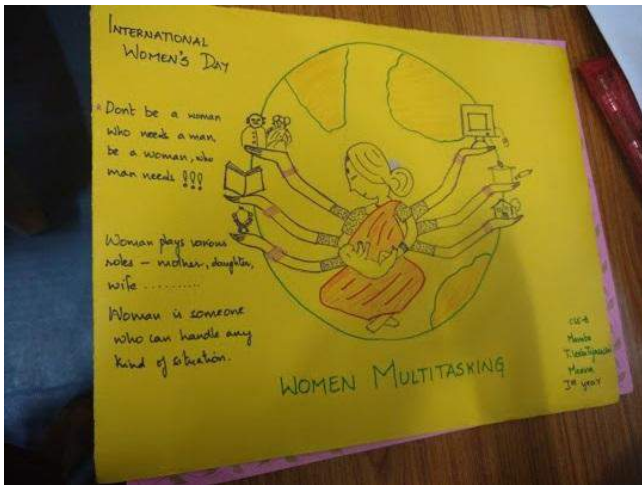 INTERNATIONAL
WOMEN'S DAY
Don't be a woman
who needs a man,
be a woman, who
man needs !!!
Woman plays various
roles – mother, daughter,
wife ..........
Woman is someone
who can handle any
kind of situation.
WOMEN MULTITASKING
CSE-B
Ist year